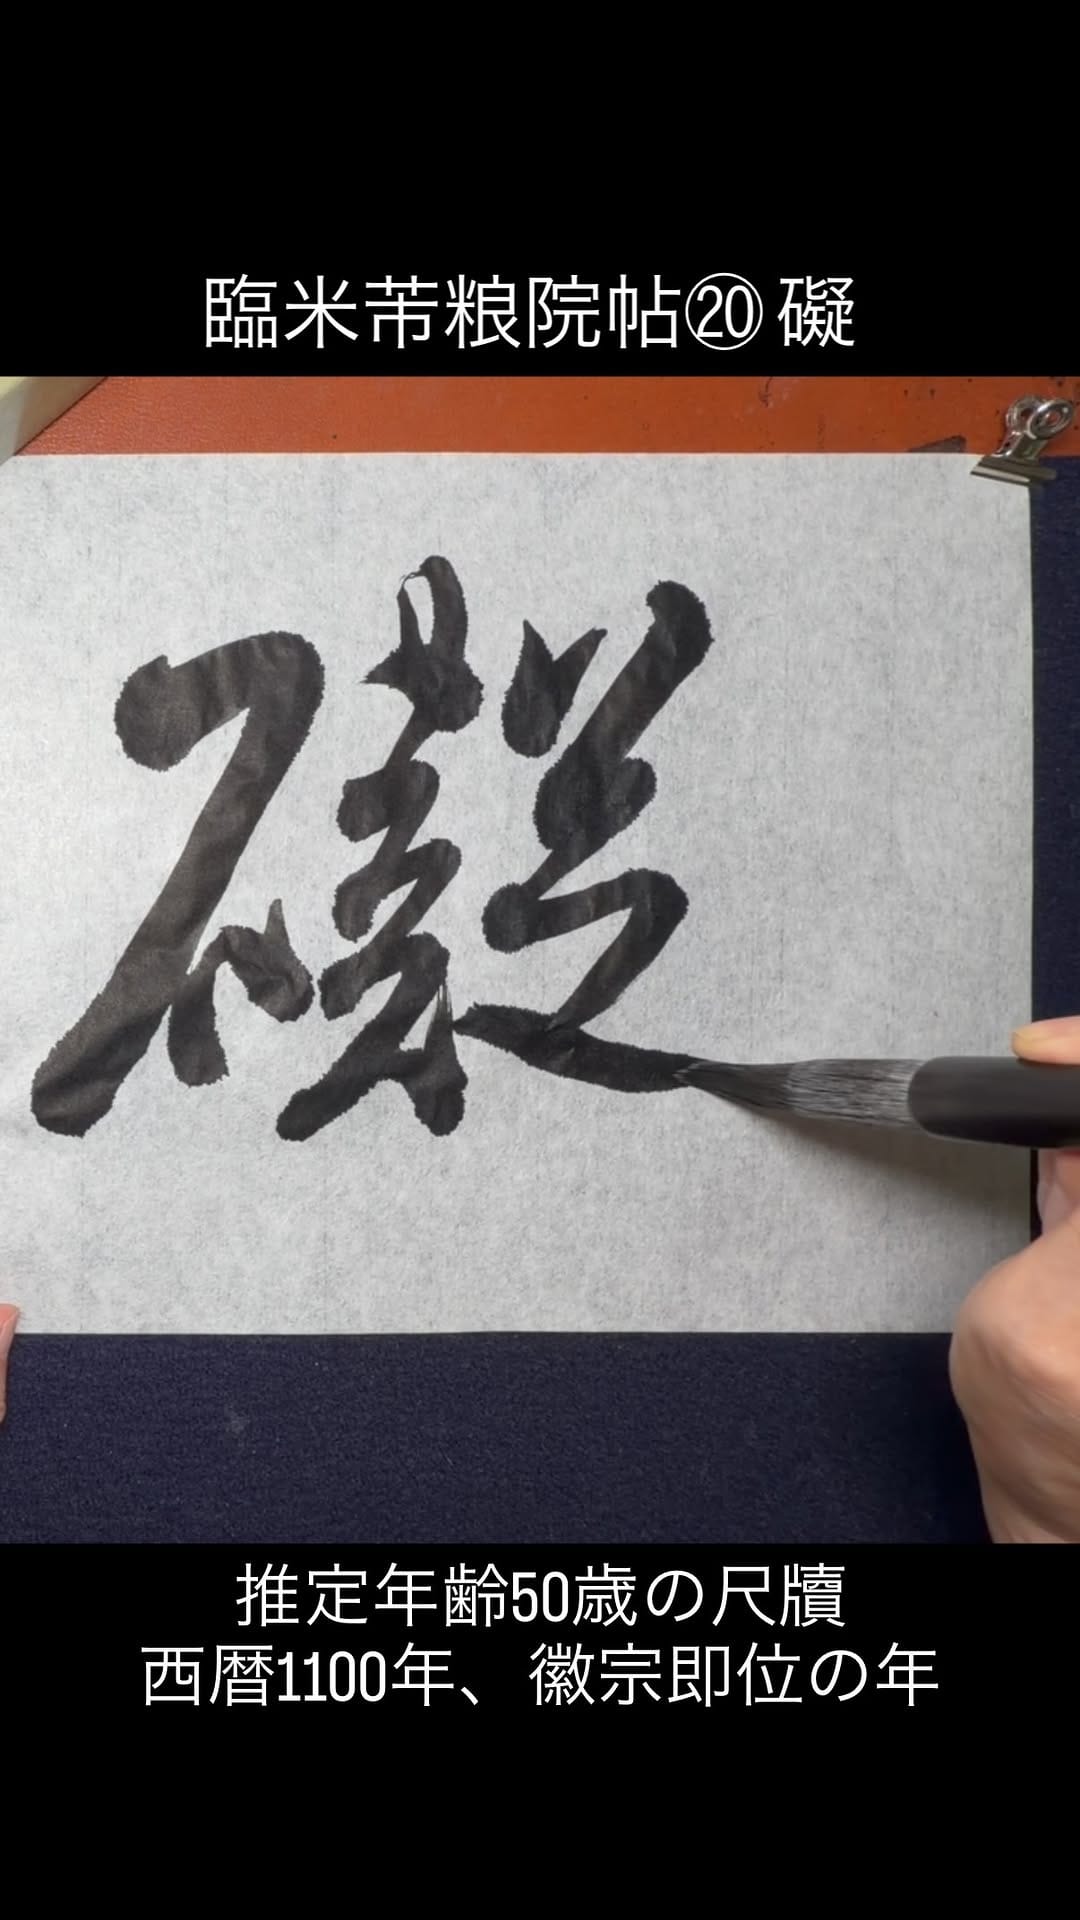 臨米芾粮院帖⑳礙
礙
推定年齢50歳の尺牘
西暦1100年、徽宗即位の年